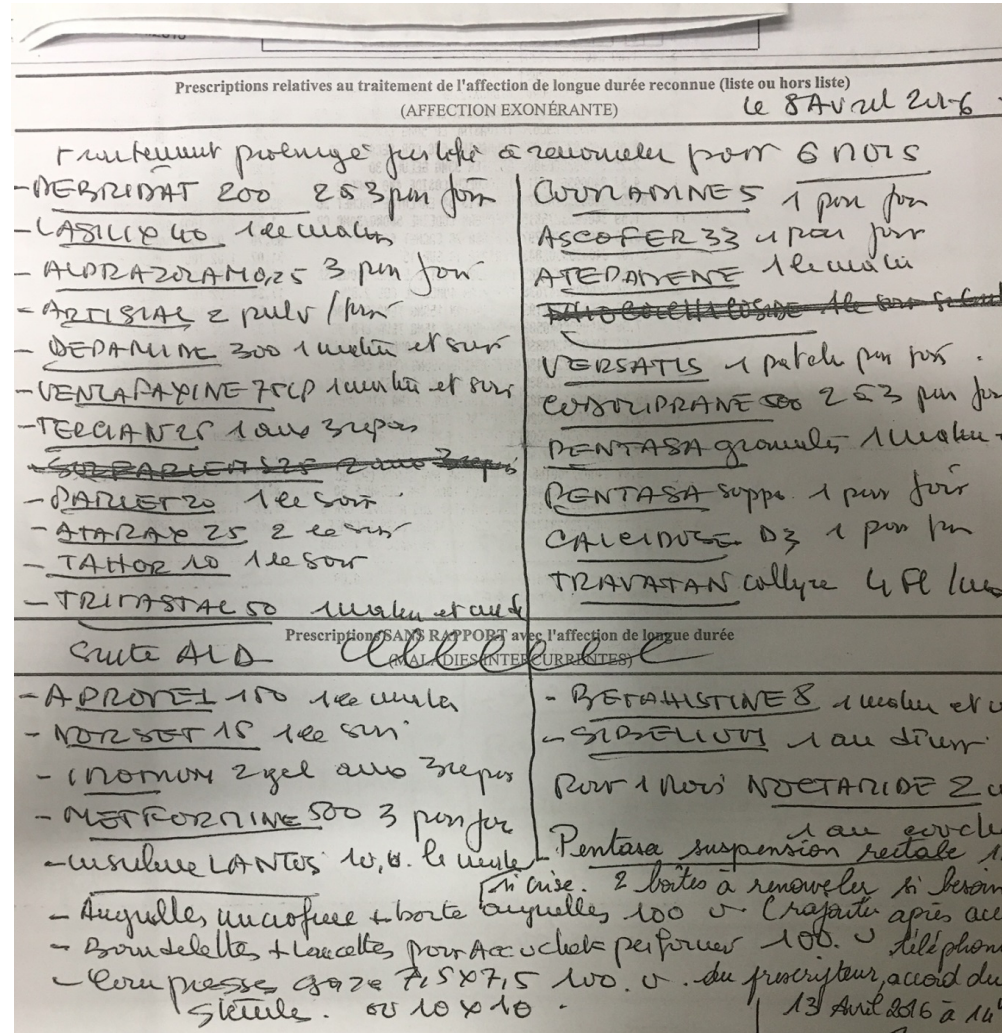 Prescriptions relatives au traitement de l'affection de longue durée reconnue (liste ou hors liste)
(AFFECTION EXONÉRANTE)
le 8 Avril 2016
Traitement prolongé justifié à renouveler pour 6 mois
- DEBRIDAT 200 2 à 3 par jour
- LASILIX 40 1 le matin
- ALPRAZOLAM 0,25 3 par jour
- ARTISIAL 2 pulv / jour
- DEPAMIDE 300 1 matin et soir
- VENLAFAXINE 75 LP 1 matin et soir
- TERCIAN 25 1 aux 3 repas
- PARIET 20 1 le soir
- ATARAX 25 2 le soir
- TAHOR 10 1 le soir
- TRIVASTAL 50 1 matin et
COUMADINE 5 1 par jour
ASCOFER 33 1 par jour
ATEPADENE 1 le matin
VERSATIS 1 patch par jour
CODOLIPRANE 2 à 3 par jour
PENTASA granulés 1 matin
PENTASA suppo 1 par jour
CALCIDOSE D3 1 par jour
TRAVATAN collyre 4 Fl
Prescriptions SANS RAPPORT avec l'affection de longue durée
(MALADIES INTERCURRENTES)
Suite ALD
- APROVEL 150 1 le matin
- NORSET 15 1 le soir
- INOMUM 2 gel aux 3 repas
- METFORMINE 500 3 par jour
- insuline LANTUS 10 u. le
- Aiguilles microfine + boite aiguilles 100 u
- Bandelettes + Lancettes pour Accuchek performer 100 u
- Compresse gaze 7,5x7,5 100 u
Stérile ou 10x10
- BETAHISTINE 8 1 matin et
- SIBELIUM 1 au diner
Pour 1 mois NOCTAMIDE 2
1 au couche
Pentasa suspension rectale 1
si crise. 2 boîtes à renouveler si besoin
(rajouté après acc
téléphon
du prescripteur, accord du
13 Avril 2016 à 14